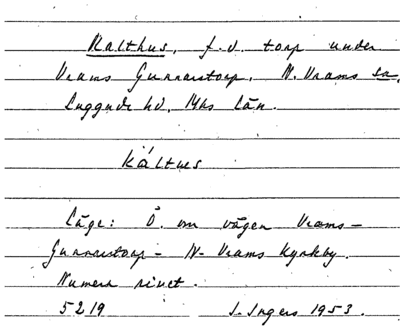 Kalthus, f.d. torp under
Vrams Gunnarstorp. N. Vrams sn,
Luggude hd, Mhs län.
kálthus
Läge: Ö. om vägen Vrams-
Gunnarstorp - N. Vrams kyrkby.
Numera rivet.
5219 I. Ingers 1953.